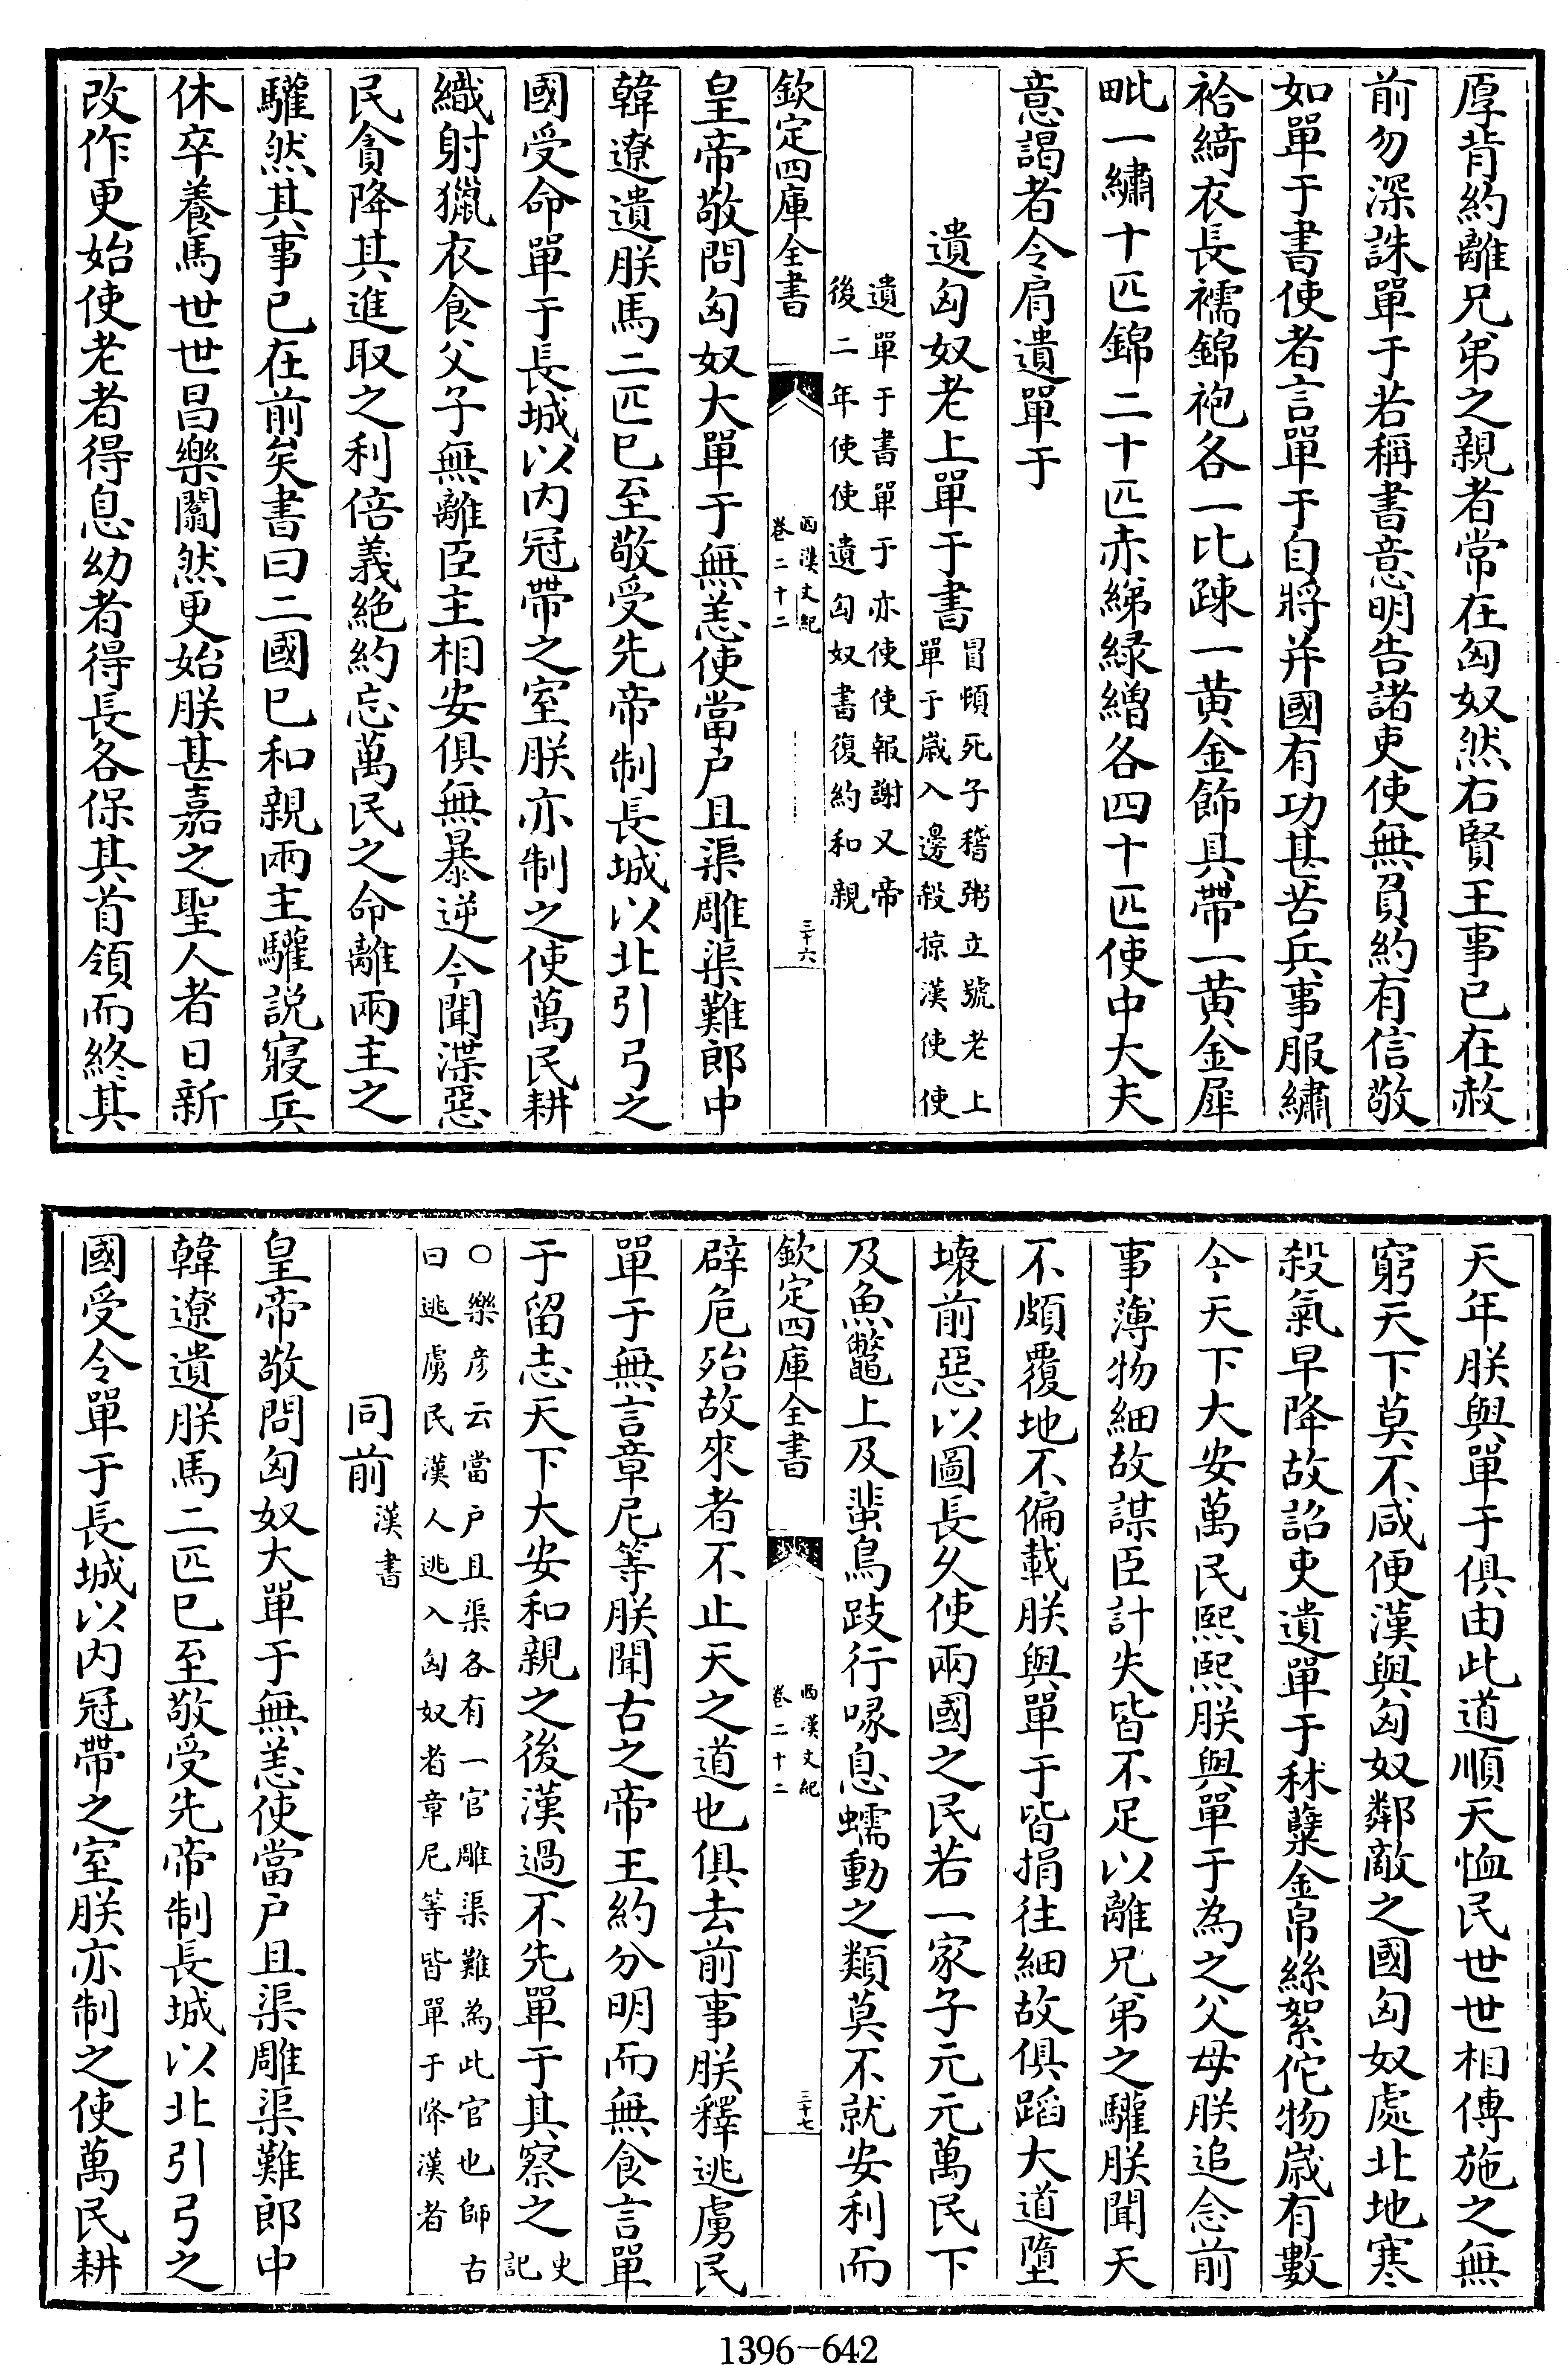 厚背約離兄弟之親者常在匈奴然右賢王事已在赦
前勿深誅單于若稱書意明告諸吏使無負約有信敬
如單于書使者言單于自將并國有功甚苦兵事服繡
袷綺衣長襦錦袍各一比疎一黄金飾具帶一黄金犀
毗一繡十匹錦二十匹赤綈緑繒各四十匹使中大夫
意謁者令肩遺單于
遺匈奴老上單于書冒頓死子稽粥立號老上
單于歲入邊殺掠漢使使
遺單于書單于亦使使報謝又帝
後二年使使遺匈奴書復約和親
欽定四庫全書
西漢文紀
卷二十二
三十六
皇帝敬問匈奴大單于無恙使當户且渠雕渠難郎中
韓遼遺朕馬二匹已至敬受先帝制長城以北引弓之
國受命單于長城以内冠帶之室朕亦制之使萬民耕
織射獵衣食父子無離臣主相安俱無暴逆今聞渫惡
民貪降其進取之利倍義絶約忘萬民之命離兩主之
驩然其事已在前矣書曰二國已和親兩主驩説寢兵
休卒養馬世世昌樂闟然更始朕甚嘉之聖人者日新
改作更始使老者得息幼者得長各保其首領而終其
天年朕與單于俱由此道順天恤民世世相傳施之無
窮天下莫不咸便漢與匈奴鄰敵之國匈奴處北地寒
殺氣早降故詔吏遺單于秫糵金帛絲絮佗物歲有數
今天下大安萬民熙熙朕與單于為之父母朕追念前
事薄物細故謀臣計失皆不足以離兄弟之驩朕聞天
不頗覆地不偏載朕與單于皆捐往細故俱蹈大道墮
壊前惡以圖長久使兩國之民若一家子元元萬民下
及魚鼈上及蜚鳥跂行喙息蠕動之類莫不就安利而
欽定四庫全書
西漢文紀
卷二十二
三十七
辟危殆故來者不止天之道也俱去前事朕釋逃虜民
單于無言章尼等朕聞古之帝王約分明而無食言單
于留志天下大安和親之後漢過不先單于其察之史
記
○樂彦云當户且渠各有一官雕渠難為此官也師古
曰逃虜民漢人逃入匈奴者章尼等皆單于降漢者
同前漢書
皇帝敬問匈奴大單于無恙使當户且渠雕渠難郎中
韓遼遺朕馬二匹已至敬受先帝制長城以北引弓之
國受令單于長城以内冠帶之室朕亦制之使萬民耕
1396-642